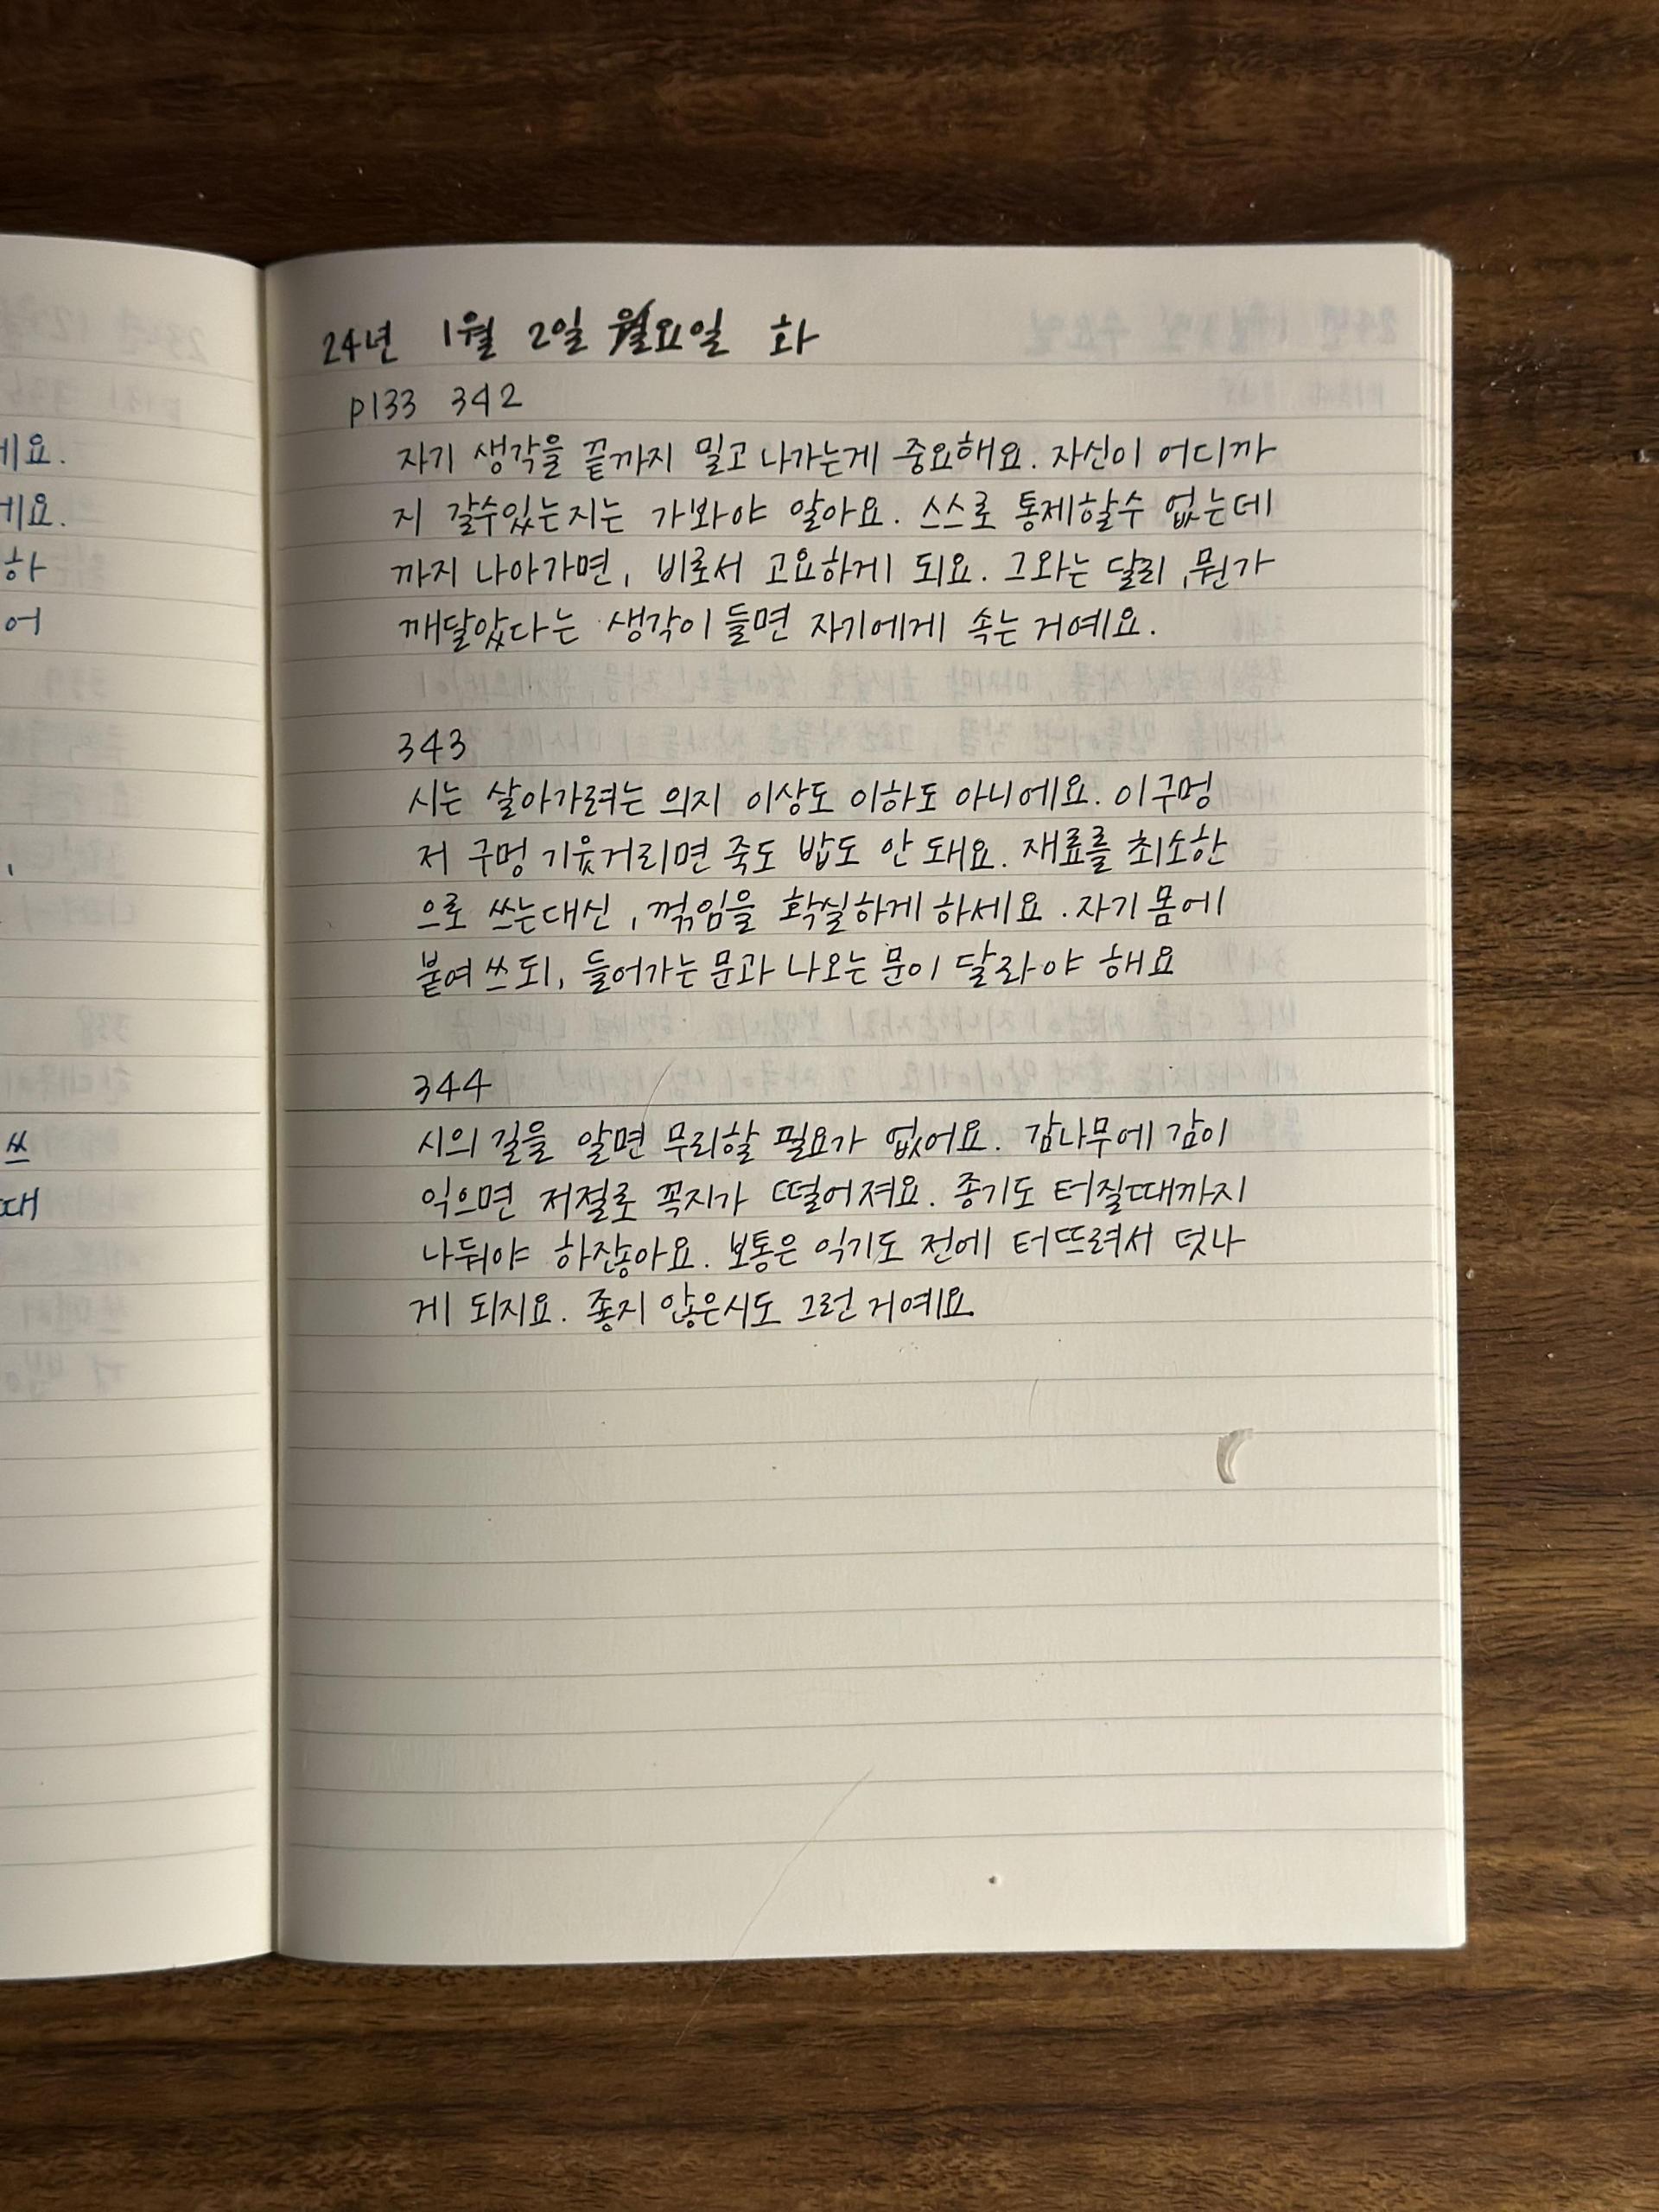 세요.
세요.
하
어
쓰
때
24년 1월 2일 월요일 화
p133 342
자기 생각을 끝까지 밀고 나가는게 중요해요. 자신이 어디까
지 갈수있는지는 가봐야 알아요. 스스로 통제할수 없는데
까지 나아가면, 비로서 고요하게 되요. 그와는 달리, 뭔가
깨달았다는 생각이 들면 자기에게 속는 거예요.
343
시는 살아가려는 의지 이상도 이하도 아니에요. 이구멍
저 구멍 기웄거리면 죽도 밥도 안 돼요. 재료를 최소한
으로 쓰는대신, 꺾임을 확실하게 하세요. 자기 몸에
붙여 쓰되, 들어가는 문과 나오는 문이 달라야 해요
344
시의 길을 알면 무리할 필요가 없어요. 감나무에 감이
익으면 저절로 꼭지가 떨어져요. 종기도 터질때까지
나둬야 하잖아요. 보통은 익기도 전에 터뜨려서 덧나
게 되지요. 좋지 않은시도 그런 거예요